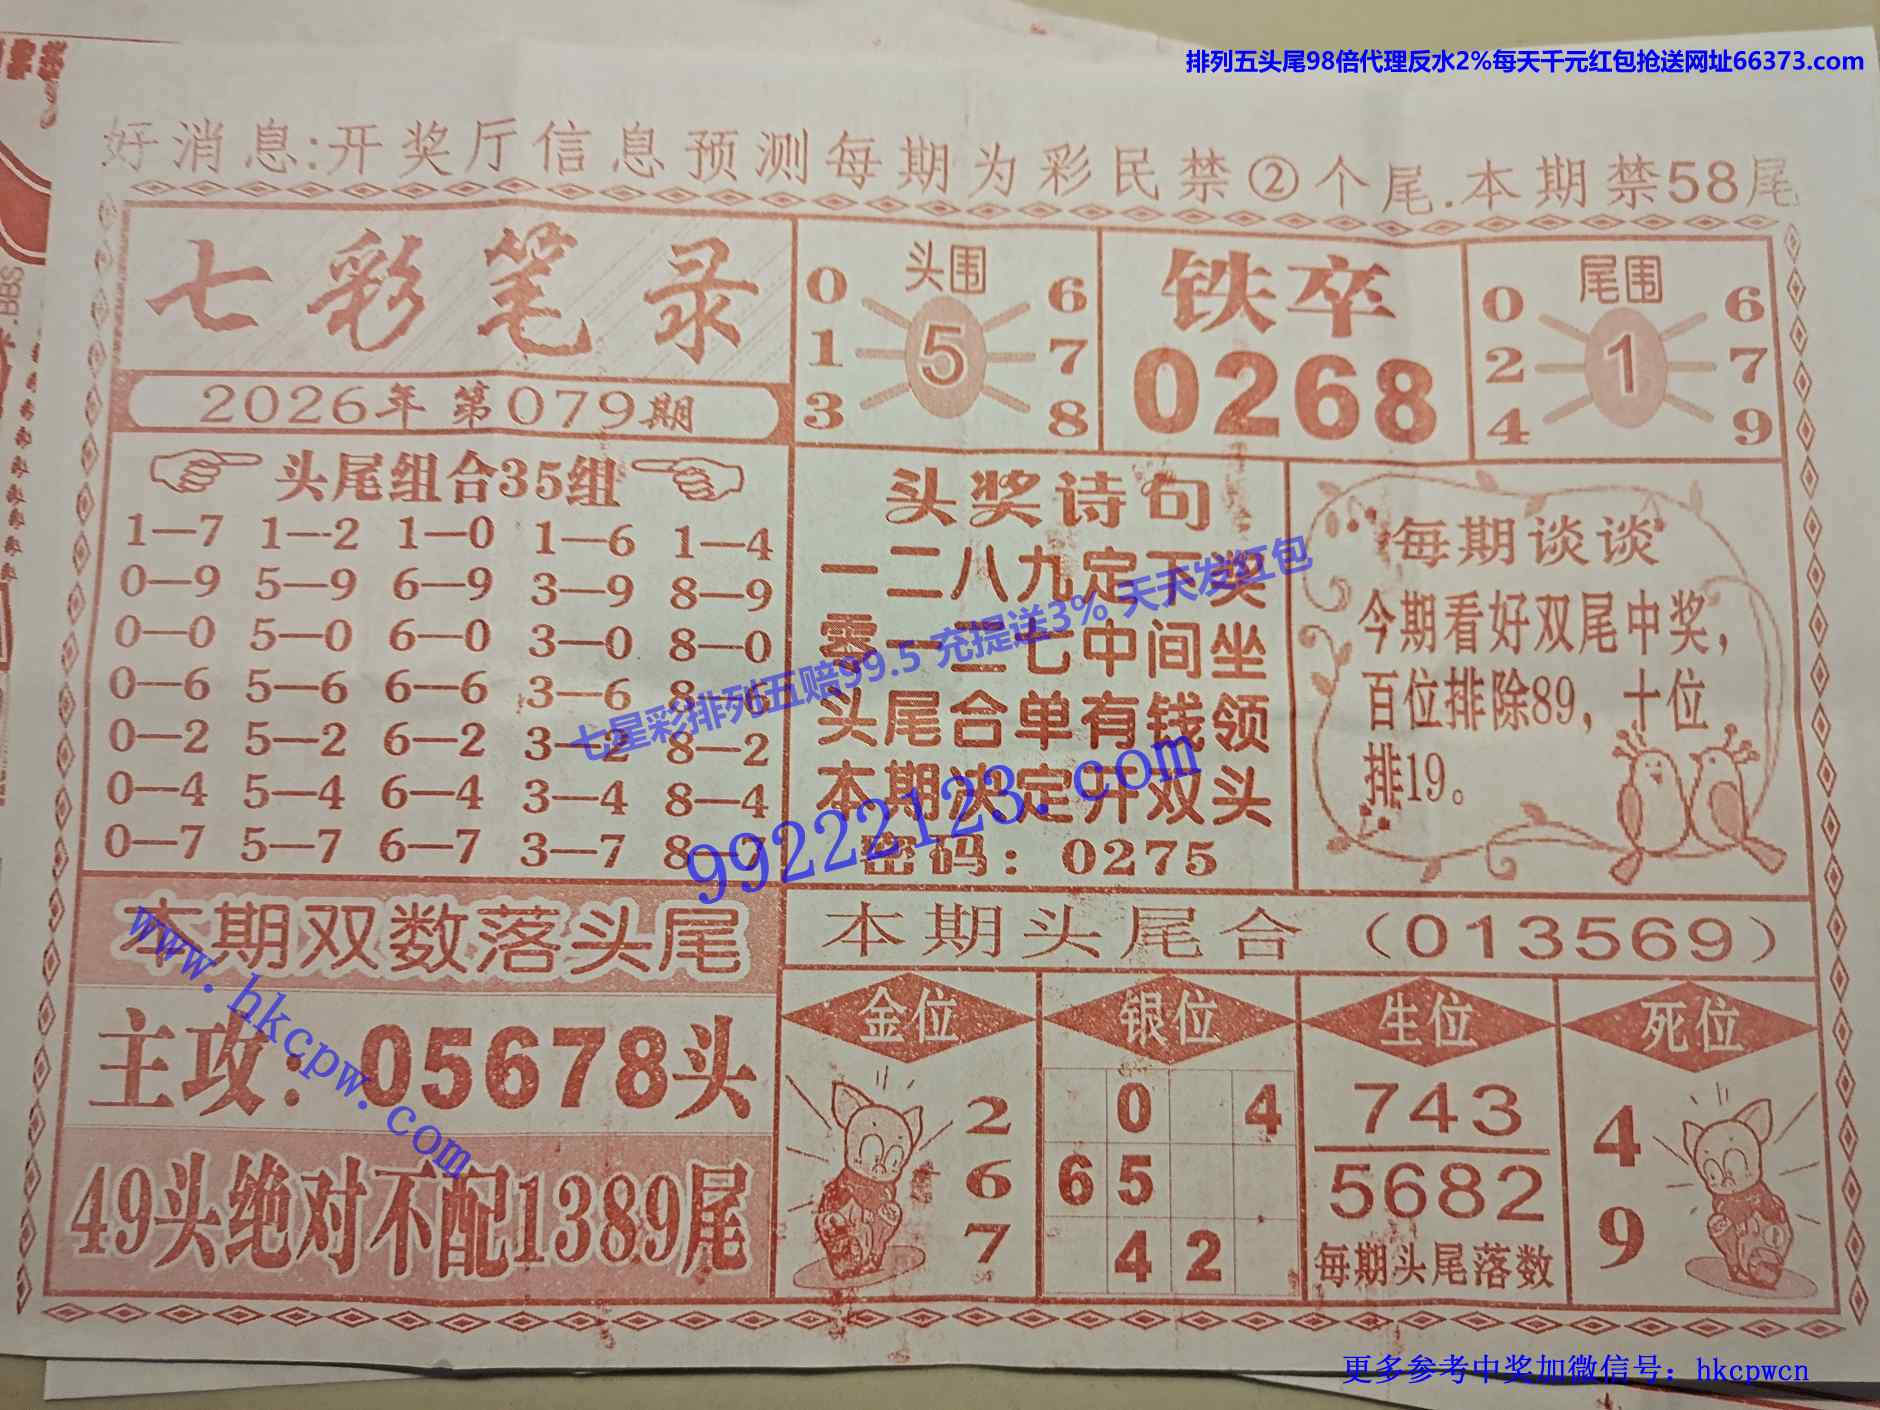 排列五头尾98倍代理反水2%每天千元红包抢送网址66373.com
好消息:开奖厅信息预测每期为彩民禁②个尾.本期禁58尾
七彩笔录
2026年 第079期
头围
0 6
1 5 7
3 8
铁卒
0268
尾围
0 6
2 1 7
4 9
头尾组合35组
1—7 1—2 1—0 1—6 1—4
0—9 5—9 6—9 3—9 8—9
0—0 5—0 6—0 3—0 8—0
0—6 5—6 6—6 3—6 8—6
0—2 5—2 6—2 3—2 8—2
0—4 5—4 6—4 3—4 8—4
0—7 5—7 6—7 3—7 8—7
头奖诗句
一二八九定下奖
零一三七中间坐
头尾合单有钱领
本期决定开双头
密码：0275
每期谈谈
今期看好双尾中奖，
百位排除89，十位
排19。
七星彩排列五赔99.5 充提送3% 天天发红包
99222123.com
本期双数落头尾
主攻：05678头
49头绝对不配1389尾
www.hkcpw.com
本期头尾合（013569）
金位
2
6
7
银位
0 4
6 5
4 2
生位
743
5682
每期头尾落数
死位
4
9
更多参考中奖加微信号：hkcpwcn